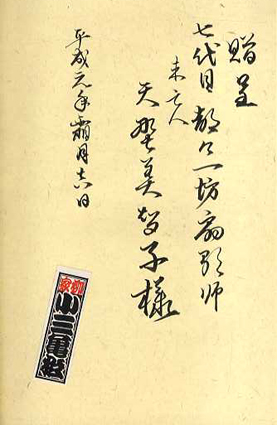 贈呈
七代目 都々一坊扇歌師
未亡人
天野美智子様
平成元年霜月十六日
柳家
小三亀松